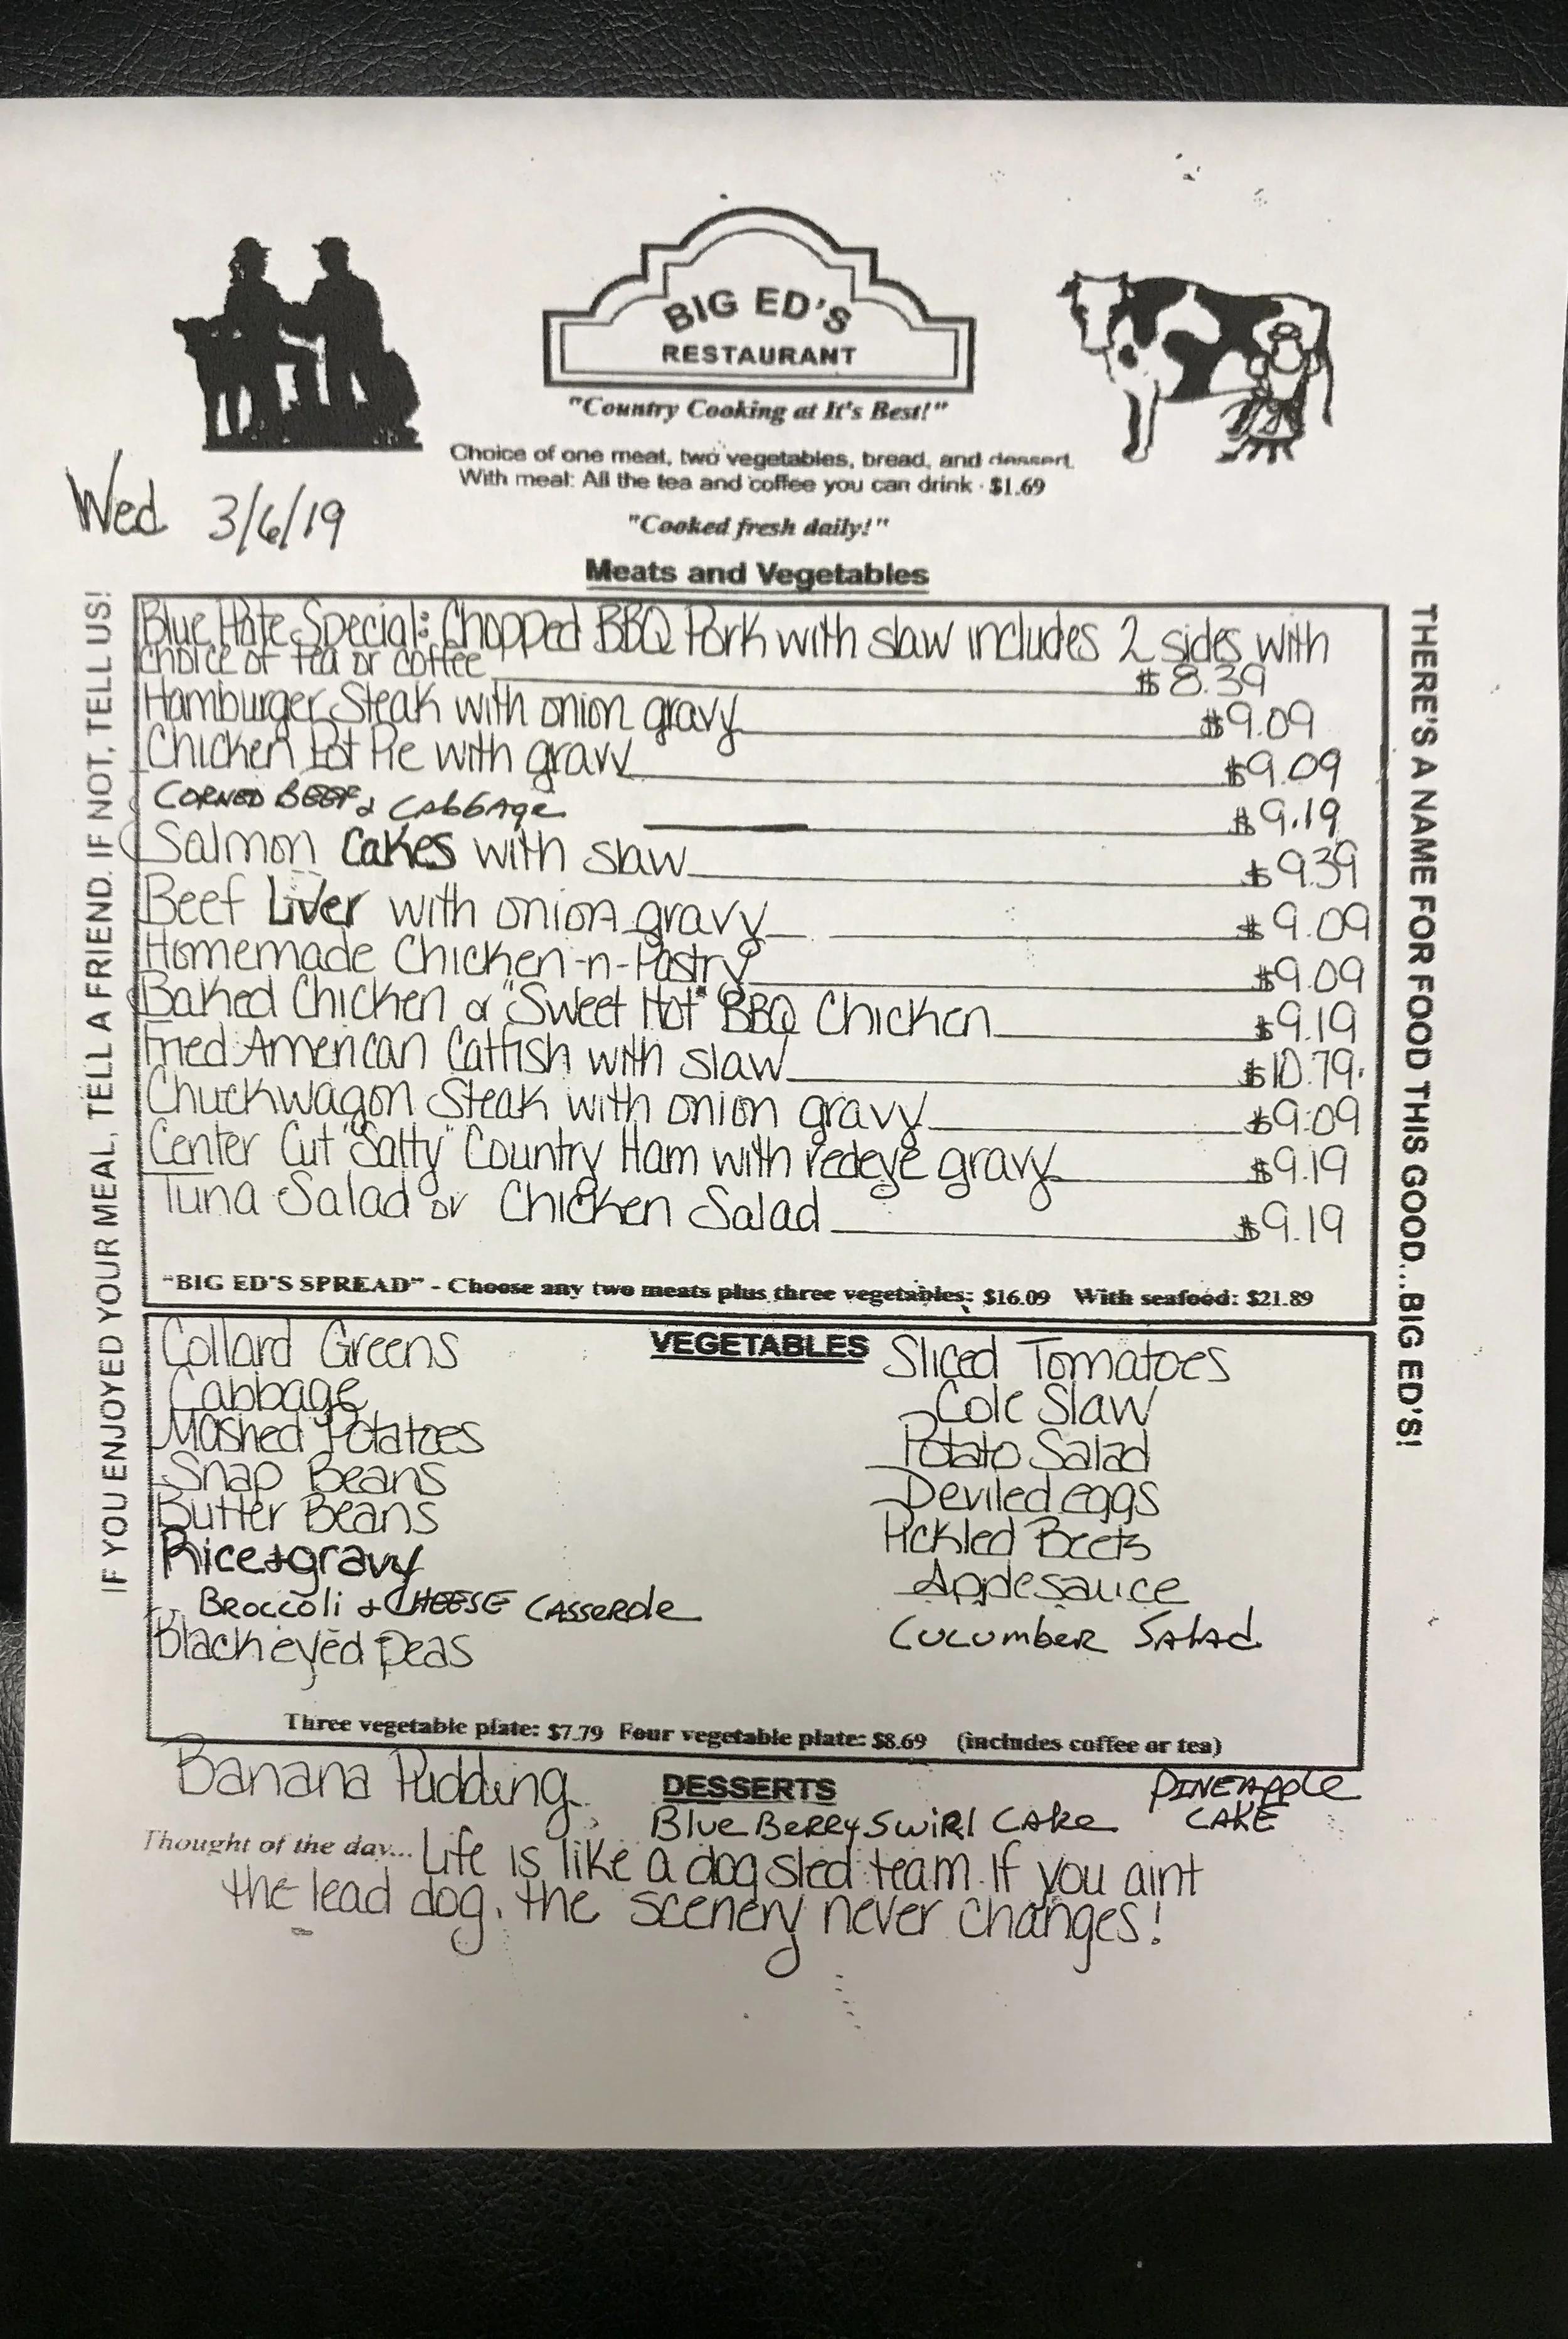 BIG ED'S
RESTAURANT
"Country Cooking at It's Best!"
Choice of one meat, two vegetables, bread, and dessert.
With meal: All the tea and coffee you can drink - $1.69
Wed 3/6/19
"Cooked fresh daily!"
Meats and Vegetables
IF YOU ENJOYED YOUR MEAL, TELL A FRIEND. IF NOT, TELL US!
Blue Plate Special: Chopped BBQ Pork with slaw includes 2 sides with
choice of tea or coffee $8.39
Hamburger Steak with onion gravy $9.09
Chicken Pot Pie with gravy $9.09
CORNED BEEF & CABBAge $9.19
Salmon Cakes with slaw $9.39
Beef Liver with onion gravy $9.09
Homemade Chicken-n-Pastry $9.09
Baked Chicken or "Sweet Hot" BBQ Chicken $9.19
Fried American Catfish with slaw $10.79
Chuckwagon Steak with onion gravy $9.09
Center Cut "Salty" Country Ham with redeye gravy $9.19
Tuna Salad or Chicken Salad $9.19
"BIG ED'S SPREAD" - Choose any two meats plus three vegetables: $16.09 With seafood: $21.89
THERE'S A NAME FOR FOOD THIS GOOD...BIG ED'S!
VEGETABLES
Collard Greens
Cabbage
Mashed Potatoes
Snap Beans
Butter Beans
Rice & gravy
BROCCOLi & CHEESE CASSEROLe
Black eyed Peas
Sliced Tomatoes
Cole Slaw
Potato Salad
Deviled eggs
Pickled Beets
Applesauce
CUCUMBER SALAd
Three vegetable plate: $7.79 Four vegetable plate: $8.69 (includes coffee or tea)
DESSERTS
Banana Pudding
Blue BeRRy SwiRl CAke
PINEAPPle
CAKE
Thought of the day... Life is like a dog sled team. If you aint
the lead dog, the scenery never changes!